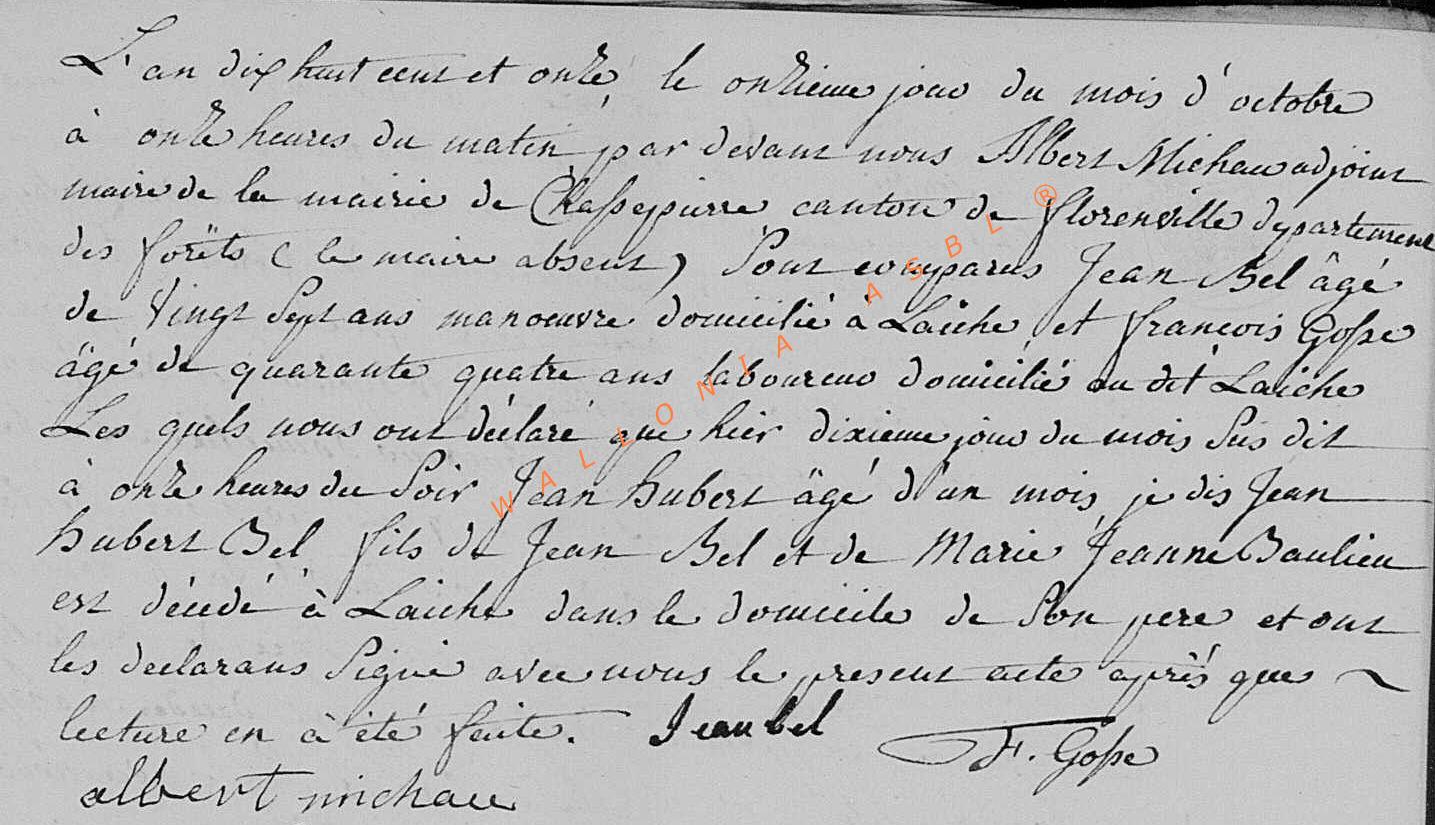 L'an dix huit cent et onze, le onzieme jour du mois d'octobre
à onze heures du matin, par devant nous Albert Michau adjoint
maire de la mairie de Chassepierre canton de florenville departement
des forêts (le maire absent) Sont comparus Jean Bel âgé
de Vingt Sept ans manoeuvre domicilié à Laiche, et francois Gosse
âgé de quarante quatre ans laboureur domicilié au dit Laiche
Les quels nous ont déclaré que hier dixieme jour du mois Sus dit
à onze heures du Soir Jean hubert âgé d'un mois, je dis Jean
hubert Bel fils de Jean Bel et de Marie Jeanne Baulieu
est décédé à Laiche dans le domicile de Son pere et ont
les declarans Signé avec nous le present acte après que ~
lecture en à été faite. Jean bel
F. Gosse
albert michau
WALLONIA ASBL ®